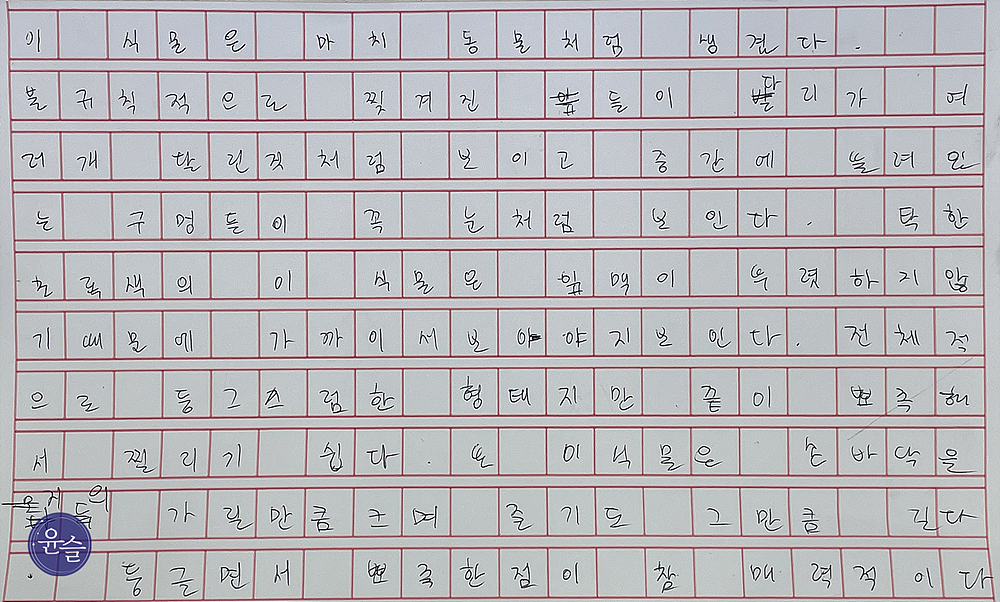 이 식물은 마치 동물처럼 생겼다.
불규칙적으로 찢겨진 잎들이 다리가 여
러개 달린것처럼 보이고 중간에 뚤려있
는 구멍들이 꼭 눈처럼 보인다. 탁한
초록색의 이 식물은 잎맥이 뚜렷하지 않
기때문에 가까이서보야야지보인다. 전체적
으로 둥그스럼한 형태지만 끝이 뾰족해
서 찔리기 쉽다. 또 이식물은 손바닥을
가릴만큼 크며 줄기도 그만큼 길다
. 둥글면서 뾰족한점이 참 매력적이다
윤슬